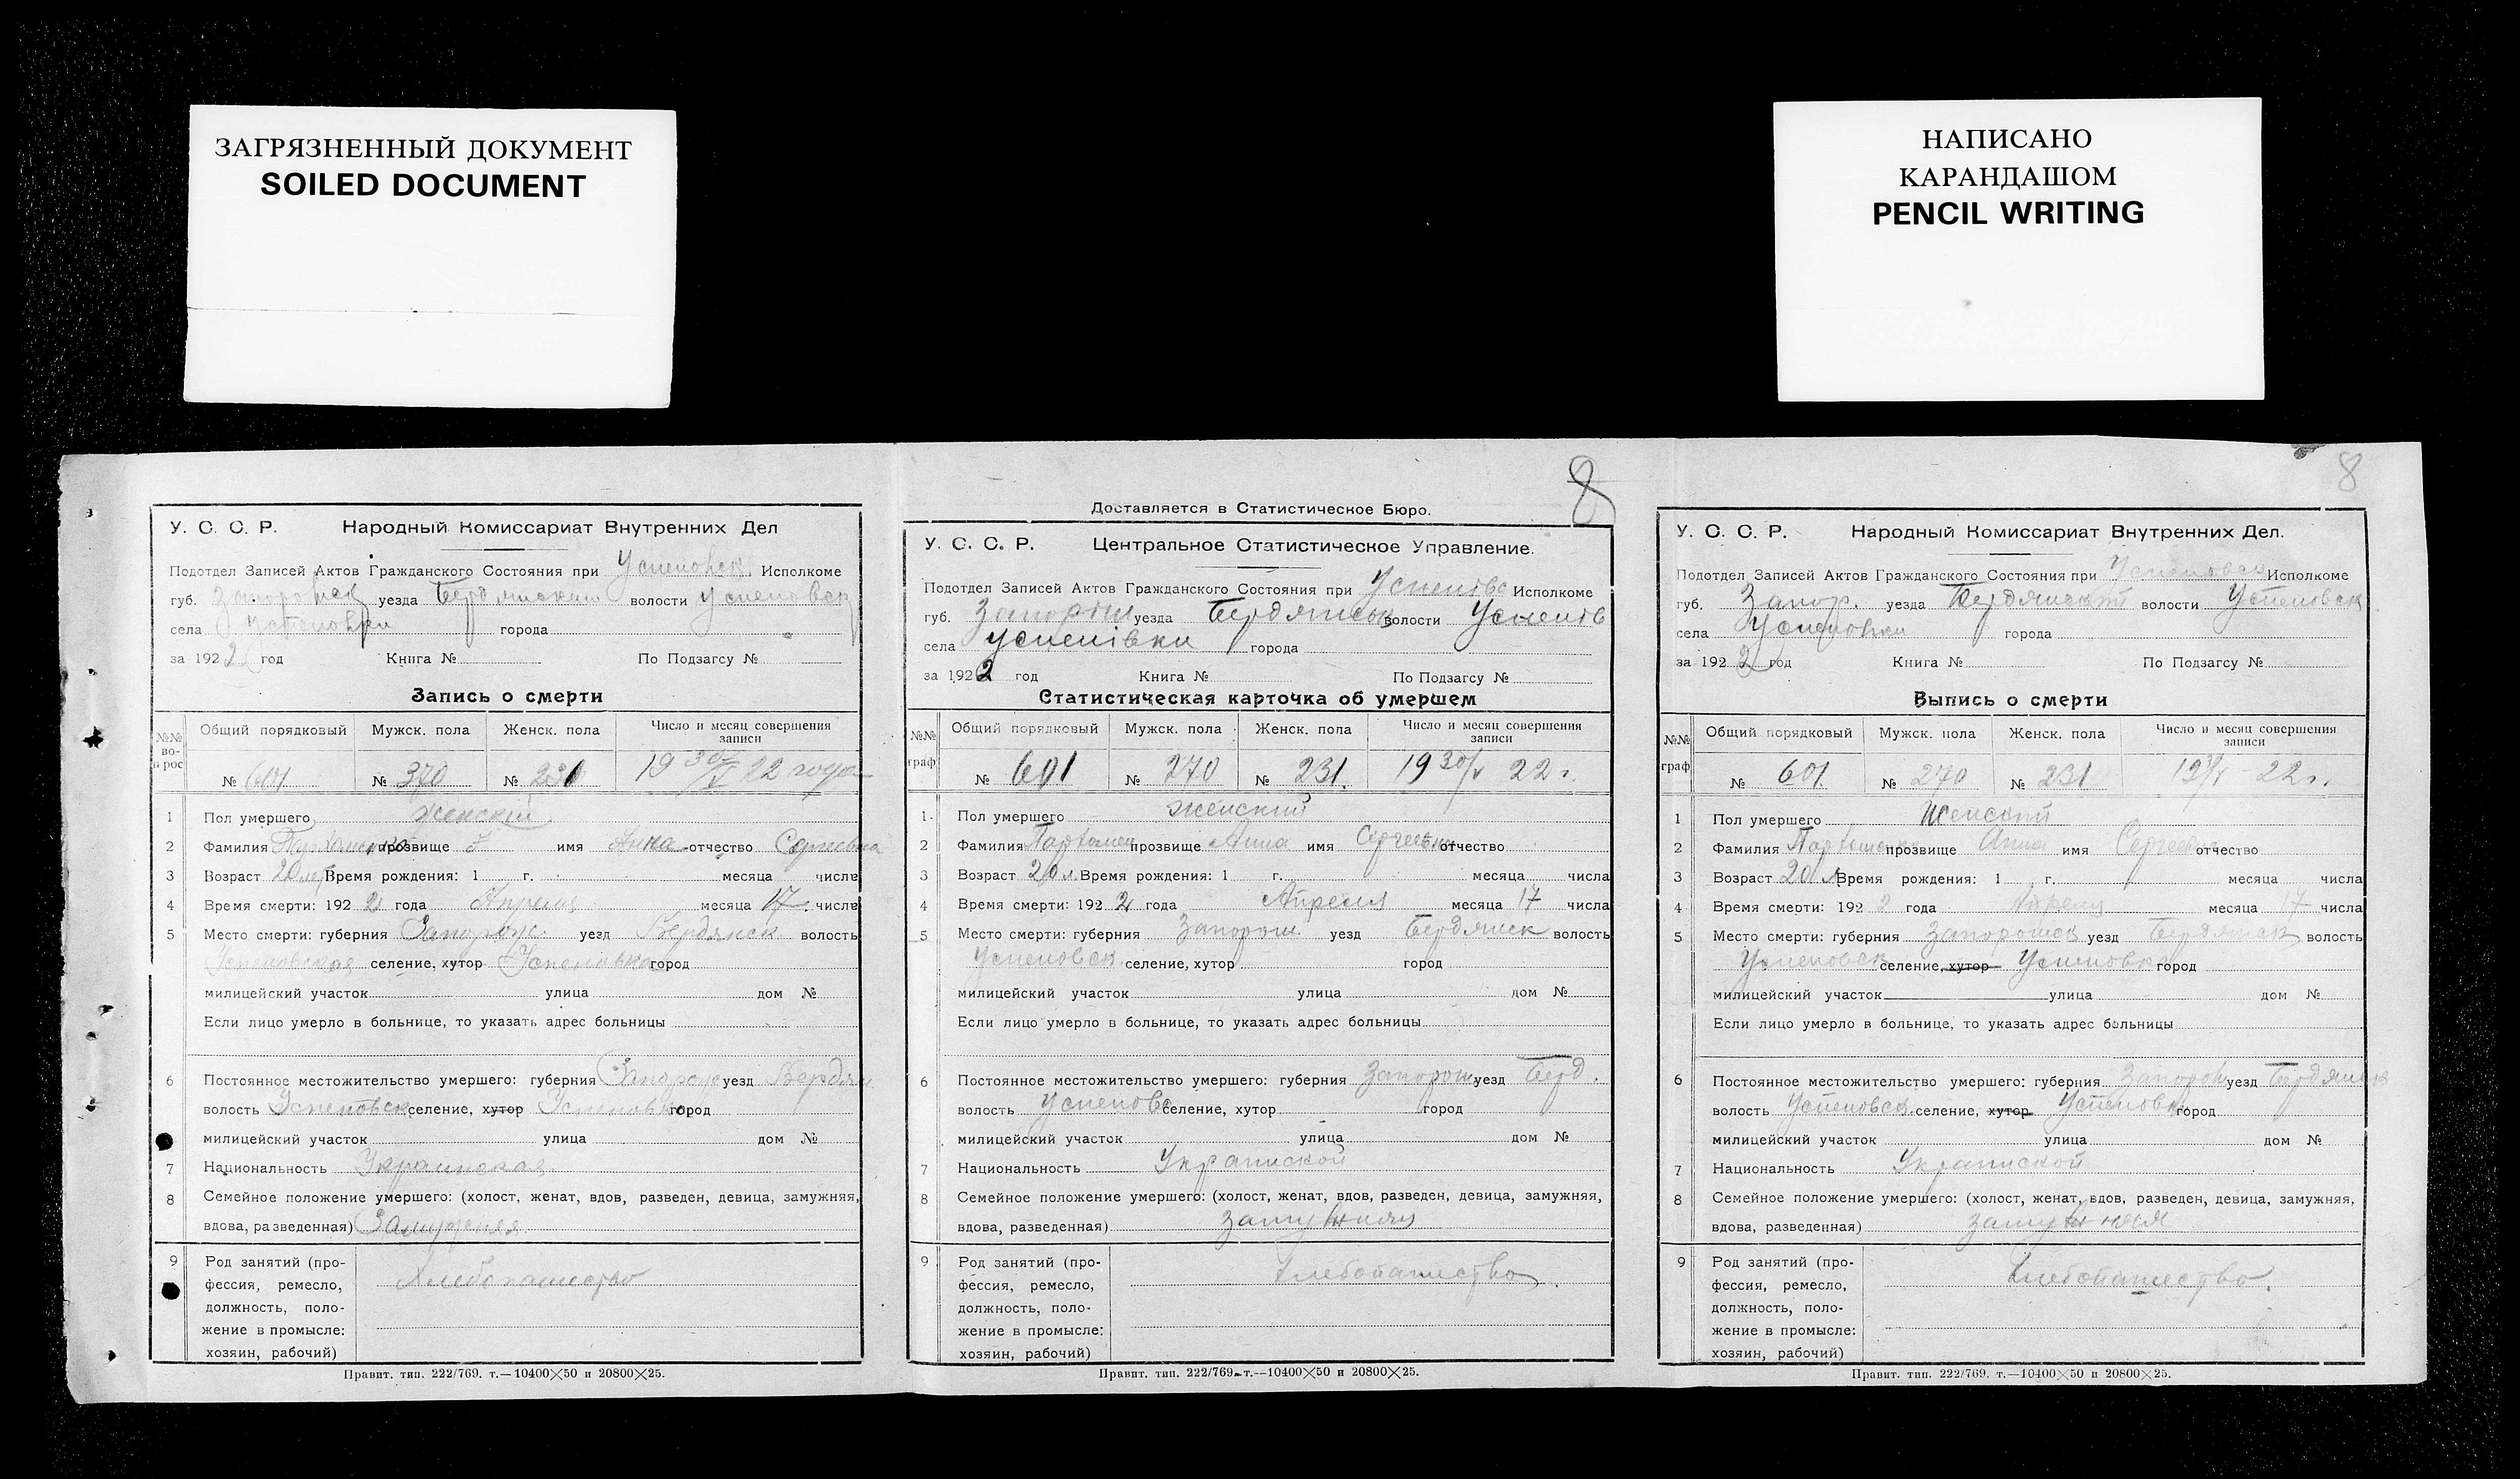 ЗАГРЯЗНЕННЫЙ ДОКУМЕНТ
SOILED DOCUMENT
НАПИСАНО
КАРАНДАШОМ
PENCIL WRITING
У. С. С. Р. Народный Комиссариат Внутренних Дел
Подотдел Записей Актов Гражданского Состояния при Успеновск. Исполкоме
губ. уезда Бердянском волости Успеновск
села Успеновки города
за 1922 год Книга № По Подзагсу №
Запись о смерти
№№ во- прос Общий порядковый Мужск. пола Женск. пола Число и месяц совершения записи
№ 601 № 370 № 231 19 30/V 22 года
1 Пол умершего Женский
2 Фамилия прозвище имя Анна отчество Сергеевна
3 Возраст 20 лет Время рождения: 1 г. месяца числа
4 Время смерти: 1922 года Апреля месяца 17 числа
5 Место смерти: губерния Запорож. уезд Бердянск волость
Успеновская селение, хутор Успеновка город
милицейский участок улица дом №
Если лицо умерло в больнице, то указать адрес больницы
6 Постоянное местожительство умершего: губерния Запорож уезд Бердян
волость Успеновск селение, хутор Успеновка город
милицейский участок улица дом №
7 Национальность Украинская
8 Семейное положение умершего: (холост, женат, вдов, разведен, девица, замужняя,
вдова, разведенная) Замужняя
9 Род занятий (про-
фессия, ремесло, Хлебопашество
должность, поло-
жение в промысле:
хозяин, рабочий)
Правит. тип. 222/769. т.—10400×50 и 20800×25.
8
Доставляется в Статистическое Бюро.
У. С. С. Р. Центральное Статистическое Управление.
Подотдел Записей Актов Гражданского Состояния при Успенівс Исполкоме
губ. уезда Бердянськ волости Успенів
села Успенівки города
за 1922 год Книга № По Подзагсу №
Статистическая карточка об умершем
№№ граф Общий порядковый Мужск. пола Женск. пола Число и месяц совершения записи
№ 601 № 270 № 231. 19 30/V 22 г.
1 Пол умершего Женский
2 Фамилия Пархомен прозвище Анна имя Сергеевна отчество
3 Возраст 20 л. Время рождения: 1 г. месяца числа
4 Время смерти: 1922 года Апреля месяца 17 числа
5 Место смерти: губерния Запорож уезд Бердянск волость
Успеновск селение, хутор город
милицейский участок улица дом №
Если лицо умерло в больнице, то указать адрес больницы
6 Постоянное местожительство умершего: губерния Запорож уезд Берд.
волость Успеновс селение, хутор город
милицейский участок улица дом №
7 Национальность Украинской
8 Семейное положение умершего: (холост, женат, вдов, разведен, девица, замужняя,
вдова, разведенная) замужняя
9 Род занятий (про-
фессия, ремесло, Хлебопашество.
должность, поло-
жение в промысле:
хозяин, рабочий)
Правит. тип. 222/769. т.—10400×50 и 20800×25.
8
У. С. С. Р. Народный Комиссариат Внутренних Дел.
Подотдел Записей Актов Гражданского Состояния при Успеновск Исполкоме
губ. Запор. уезда волости Успеновск
села Успеновки города
за 1922 год Книга № По Подзагсу №
Выпись о смерти
№№ граф Общий порядковый Мужск. пола Женск. пола Число и месяц совершения записи
№ 601 № 270 № 231 22 г.
1 Пол умершего Женский
2 Фамилия прозвище Анна имя отчество
3 Возраст 20 л Время рождения: 1 г. месяца числа
4 Время смерти: 1922 года Апреля месяца 17 числа
5 Место смерти: губерния уезд Бердянск волость
Успеновск селение, хутор Успеновка город
милицейский участок улица дом №
Если лицо умерло в больнице, то указать адрес больницы
6 Постоянное местожительство умершего: губерния Запорож уезд Бердянск
волость Успеновск. селение, хутор город
милицейский участок улица дом №
7 Национальность Украинской
8 Семейное положение умершего: (холост, женат, вдов, разведен, девица, замужняя,
вдова, разведенная) замужняя
9 Род занятий (про-
фессия, ремесло, Хлебопашество.
должность, поло-
жение в промысле:
хозяин, рабочий)
Правит. тип. 222/769. т.—10400×50 и 20800×25.